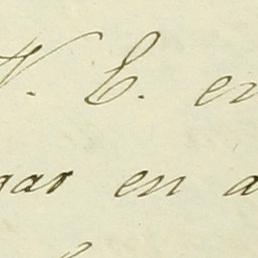 V. E. en
gar en a